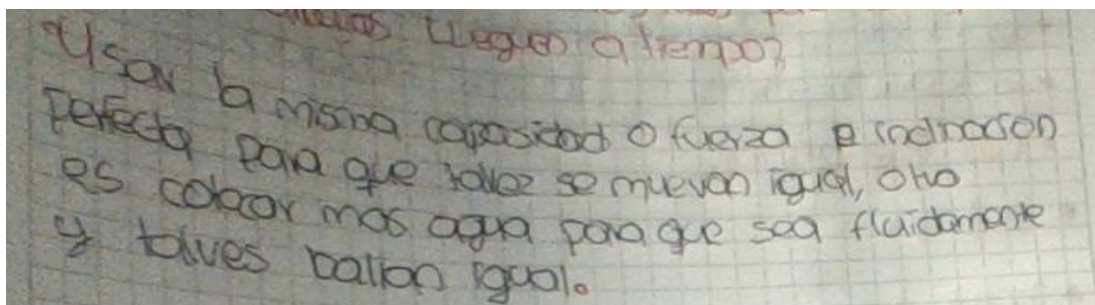 lleguen a tiempo?
Usar la misma capasidad o fuerza e inclinacion
perfecta para que talvez se muevan igual, otro
es colocar mas agua para que sea fluidamente
y talves vallan igual.